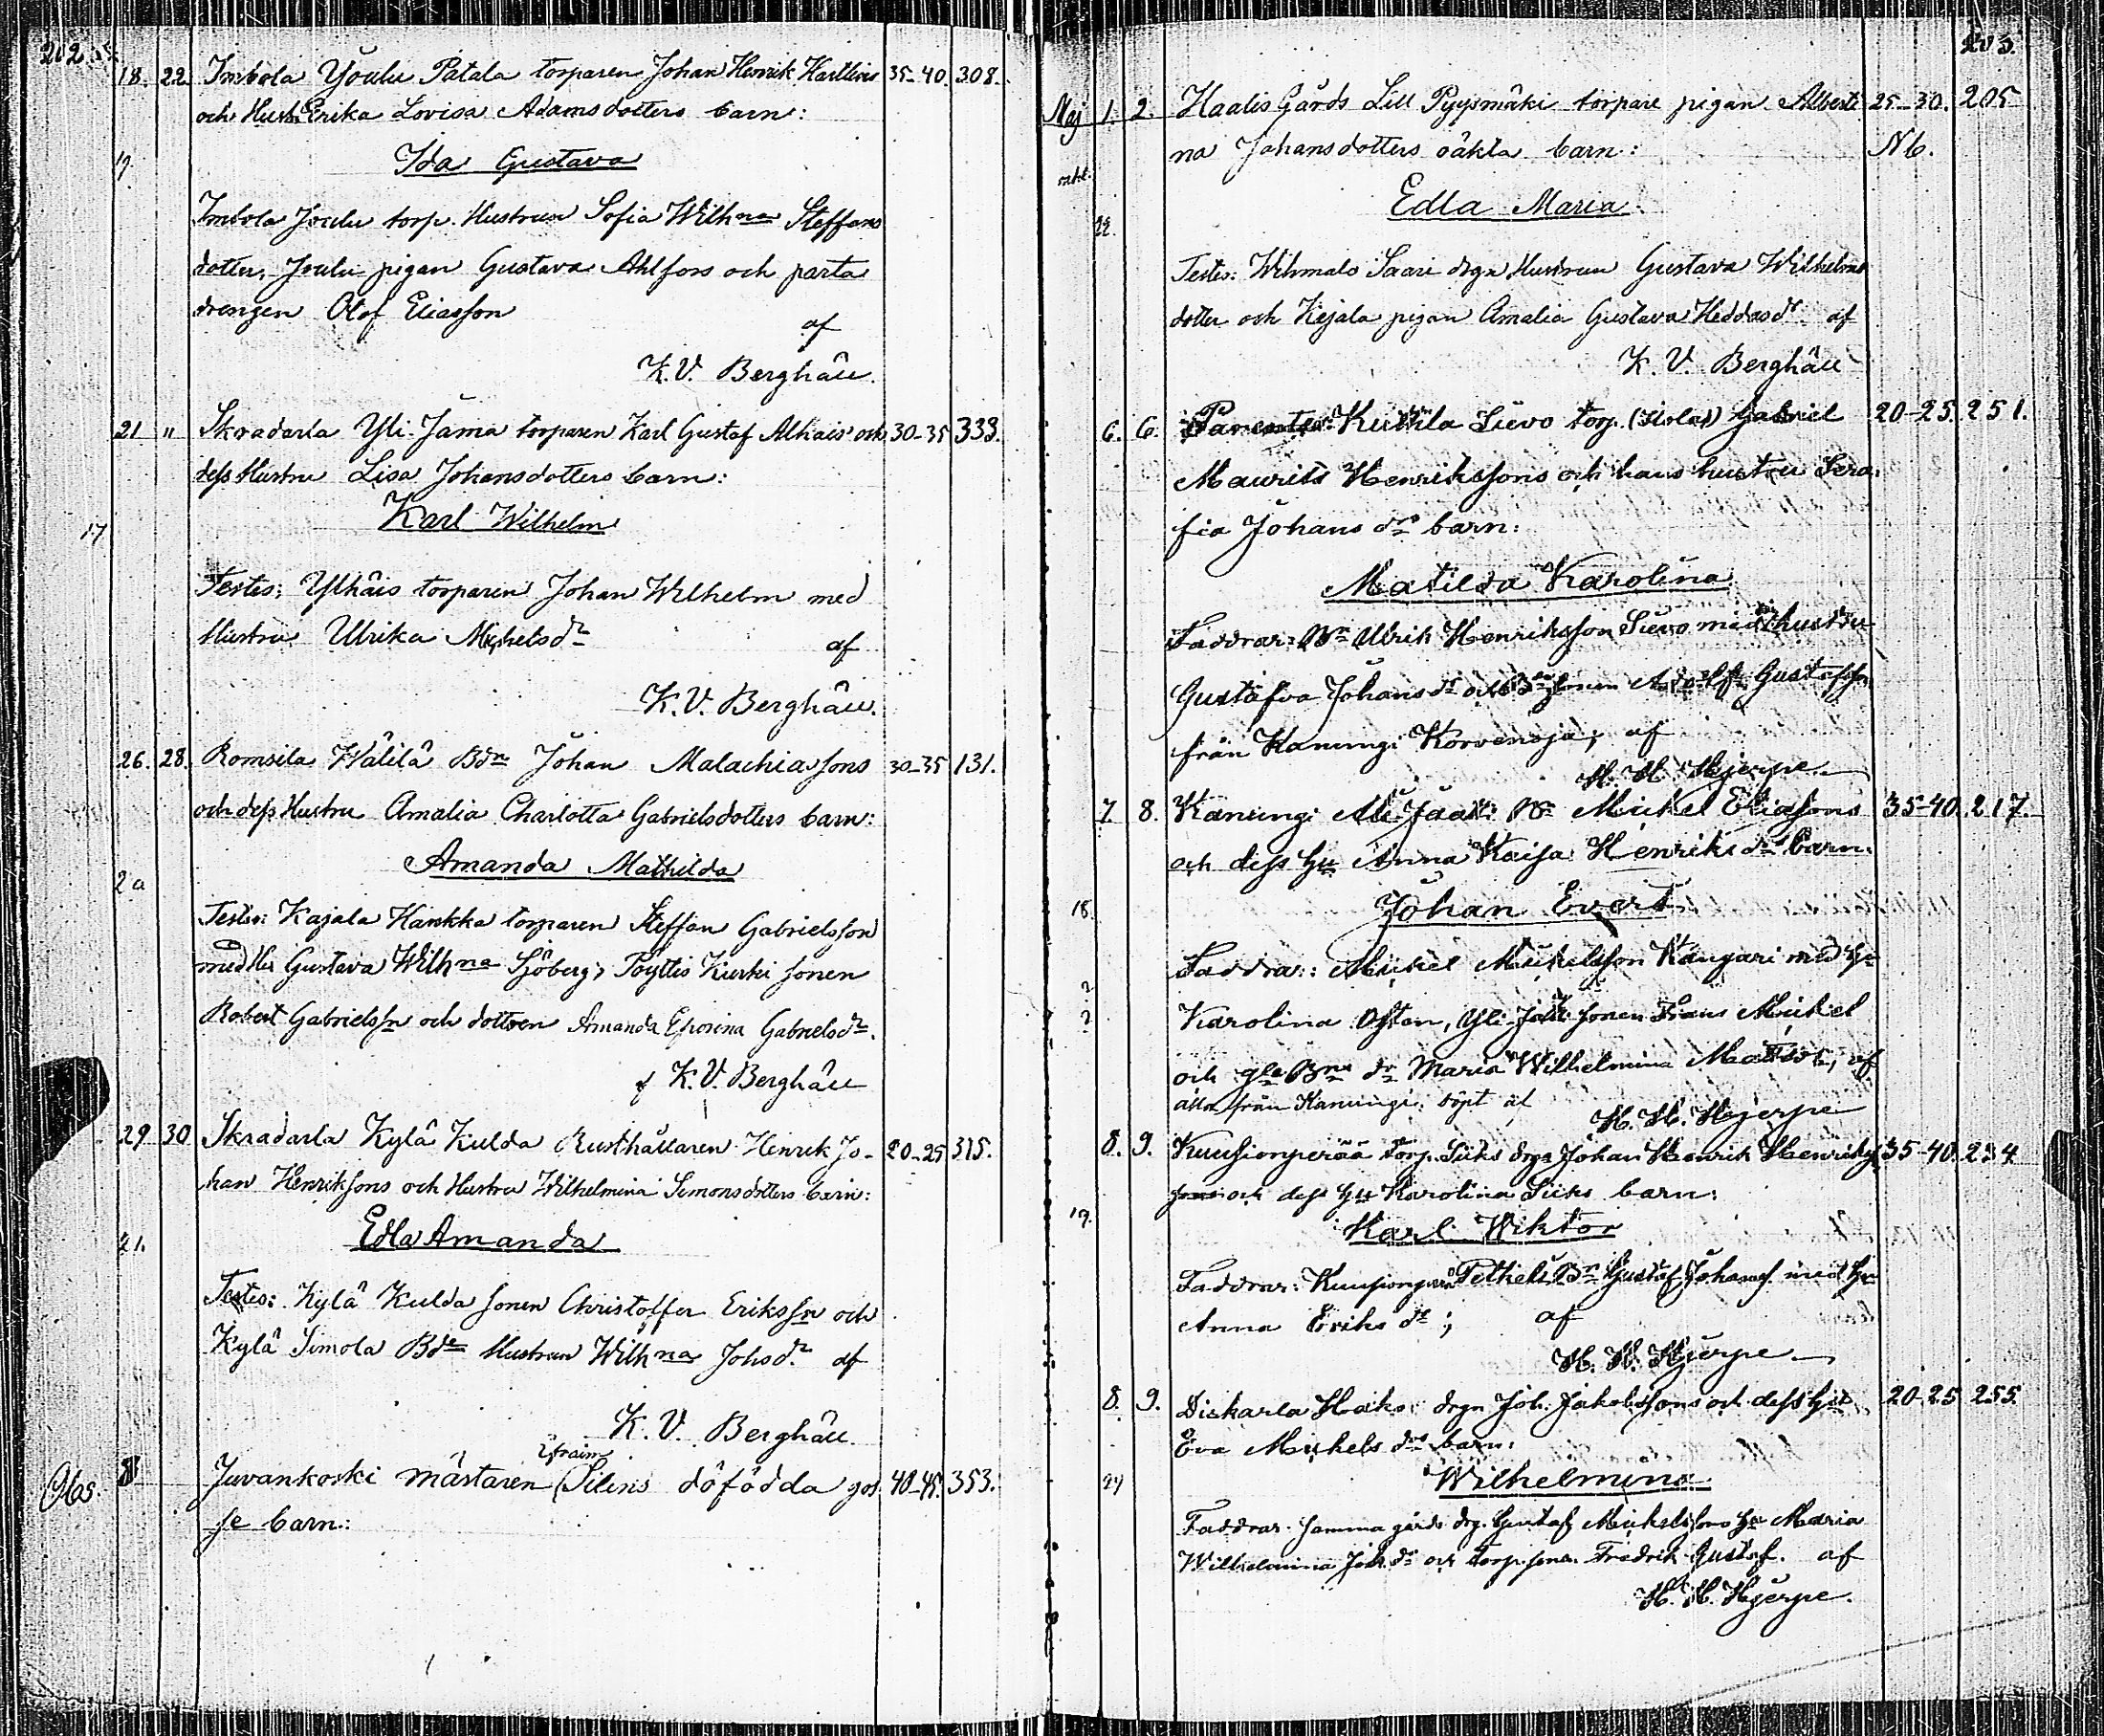 202
18. 22. Imbola Youlu Patala torparen Johan Henrik Karllius 35-40 308.
och Hust. Erika Lovisa Adamsdotters barn:
19.
Ida Gustava
Imbola Joulu torp. Hustrun Sofia Wilhna Steffans
dotter, Joulu pigan Gustava Ahlfors och parta
drengen Olof Eliasson
af
K. V. Berghäll.
21 " Skradarla Yli-Jama torparen Karl Gustaf Alhais och 30-35 333.
dess Hustru Lisa Johansdotters barn:
Karl Wilhelm
17
Testes: Ylhäis torparen Johan Wilhelm med
Hustru Ulrika Michelsdr
af
K. V. Berghäll.
26. 28. Romsila Wälilä Bdn Johan Malachiassons 30-35 131.
och dess Hustru Amalia Charlotta Gabrielsdotters barn:
Amanda Mathilda
2a
Testes: Kajala Hankka torparen Steffan Gabrielsson
med Hu Gustava Wilhna Sjöberg, Pöyttis Kurki sonen
Robert Gabrielssn och dottren Amanda Efrosina Gabrielsdr.
af K. V. Berghäll
29 30 Skradarla Kylä Kulda Rusthållaren Henrik Jo- 20-25 315.
han Henriksons och Hustru Wilhelmina Simonsdotters barn:
21.
Edla Amanda
Testes: Kylä Kulda sonen Christoffer Erikssn och
Kylä Simola Bde Hustrun Wilhna Johsdr. af
K. V. Berghäll
Efraim
Obs. 8 Juvankoski mästaren Silens döfödda gos 40-45. 353.
se barn:
203.
Maj 1. 2. Haalis Gårds Lill Pyysmäki torpare pigan Alberti 25-30. 205
na Johansdotters oäkta barn: Nb.
Edla Maria
22.
Testes: Wihmalo Saari drgn Hustrun Gustava Wilhelms
dotter och Kejala pigan Amalia Gustava Heddasdr. af
K. V. Berghäll
6. 6. Kuhila Sievo torp. Gabriel 20-25. 251.
Maurits Henrikssons och hans hustru Sera
fia Johans drs barn:
Matilda Karolina
Faddrar: Bn Ulrik Henriksson Sievo med hustru
Gustafva Johans dr och sonen Adolf Gustafsson
från Kanungi Korvenoja; af
H. H. Hjerpe
7. 8. Kanungi Ali-Jaak: Bn Mickel Eliasons 35-40. 217.
och dess Hu Anna Kaisa Henriks drs barn.
18.
Johan Evert
Faddrar: Mickel Mickelsson Kangari med Hu
? Karolina Osten, Yli-Jaak sonen Frans Mickel
? och gle Bns dr Maria Wilhelmina Mattsdr, af
alla från Kanungi. döpt af
H. H. Hjerpe
8. 9. Kuusionperää torp. Siiks drgs Johan Henrik Henriks 35-40. 234
sons och dess Hu Karolina Siiks barn:
19.
Karl Wiktor
Faddrar: Kuusionperä Pethels Bn Gustaf Johans. med Hu
Anna Eriks dr; af
H. H. Hjerpe
8. 9. Diskarla Hoiko drgn Joh. Jakobssons och dess Hus 20-25 255.
Eva Mickels drs barn:
24
Wilhelmina
Faddrar. samma gårds drg. Gustaf Mickelssons Hu Maria
Wilhelmina Joh. dr och Torp. sonen Fredrik Gustaf. af
H. H. Hjerpe.